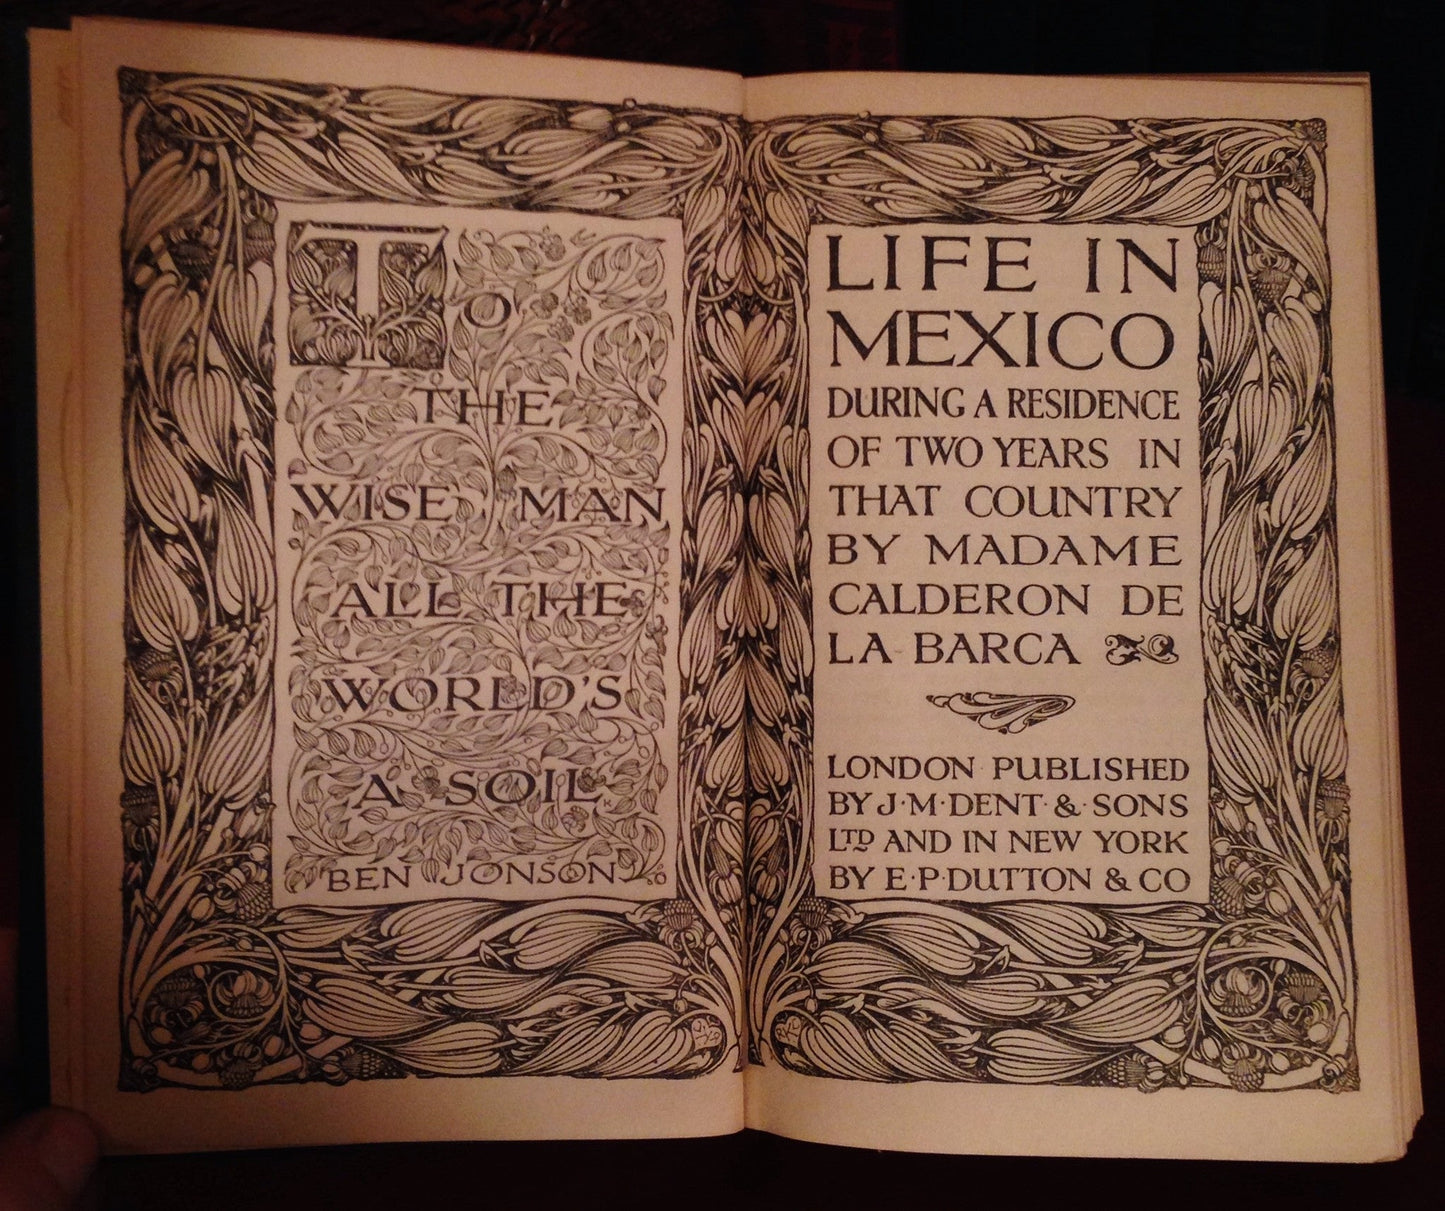 TO
THE
WISE MAN
ALL THE
WORLD'S
A SOIL
BEN JONSON
LIFE IN
MEXICO
DURING A RESIDENCE
OF TWO YEARS IN
THAT COUNTRY
BY MADAME
CALDERON DE
LA BARCA
LONDON PUBLISHED
BY J·M·DENT & SONS
LTD AND IN NEW YORK
BY E·P·DUTTON & CO